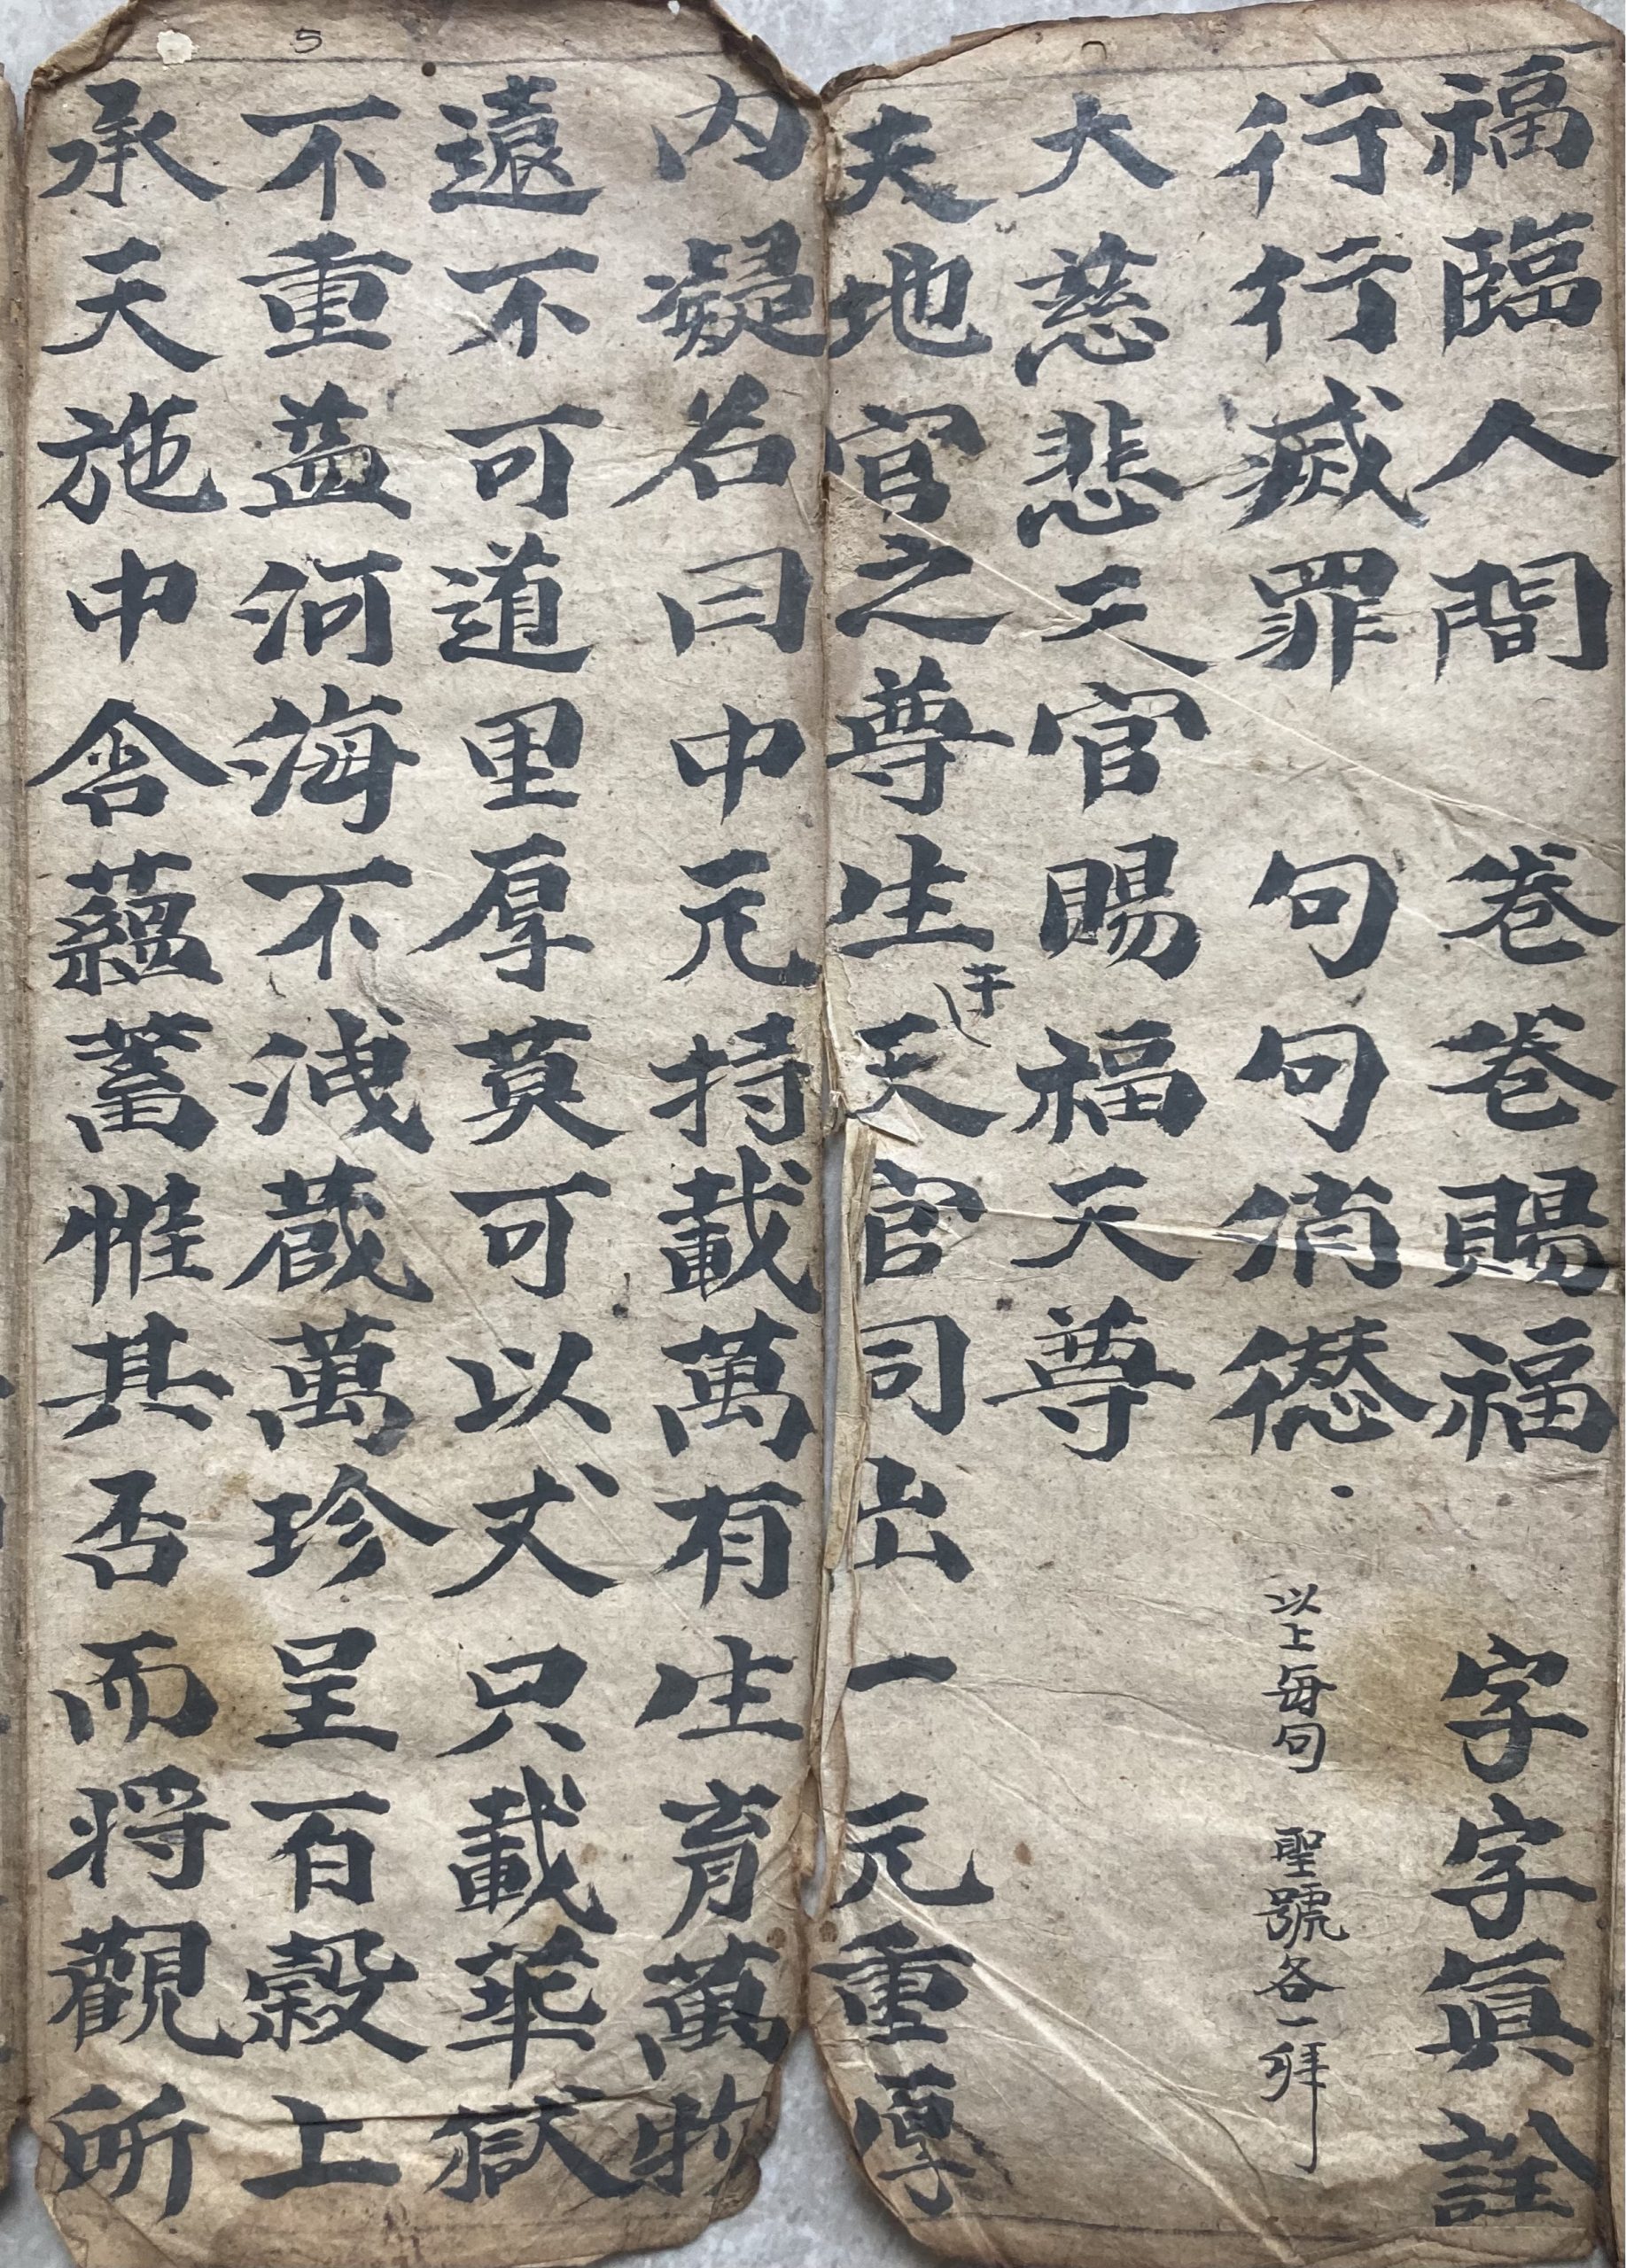 福臨人間　卷卷賜福　字字眞詮
行行滅罪　句句消愆　以上每句　聖號各一拜
大慈悲三官賜福天尊
夫地官之尊生于天天官司出一元重厚
內凝名曰中元持載萬有生育萬物
遠不可道里厚莫可以丈只載華獄
不重蓋河海不洩蔵萬珍呈百穀上
承天施中含蘊蓄惟其否而将觀所
5